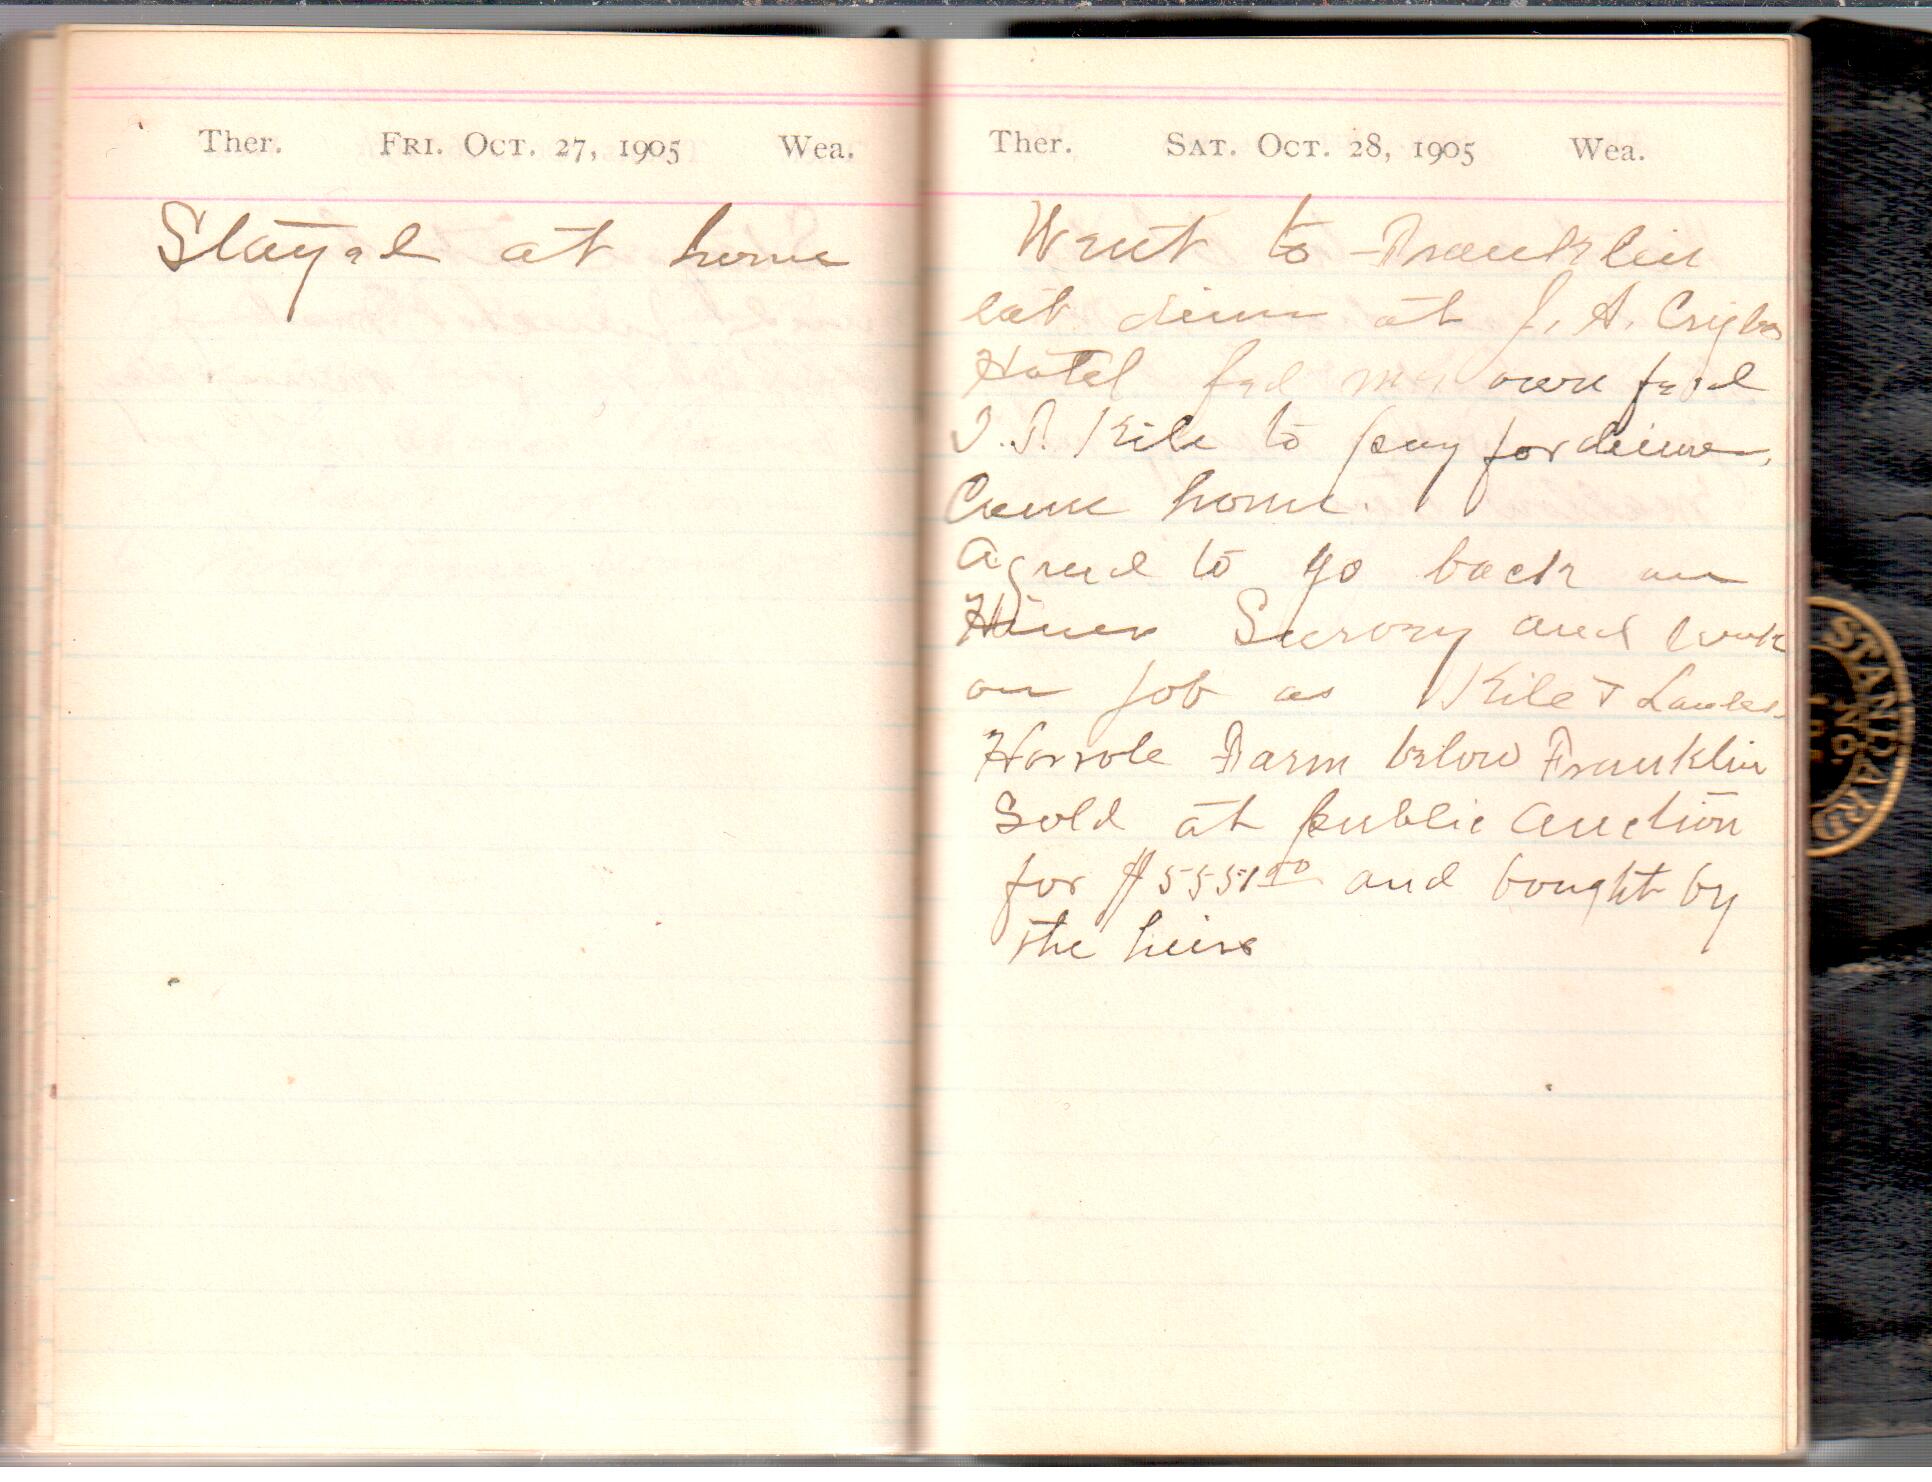 Ther. FRI. OCT. 27, 1905 Wea.
Stayed at home
Ther. SAT. OCT. 28, 1905 Wea.
Went to Franklin
eat dinner at J. A. Criglers
Hotel fed my own feed
Kile to pay for dinner,
Came home.
Agreed to go back on
Hiner Survey and work
on job as Kile &
Harrole Farm below Franklin
Sold at public auction
for $5551 50 and bought by
the heirs
STANDARD
NO.